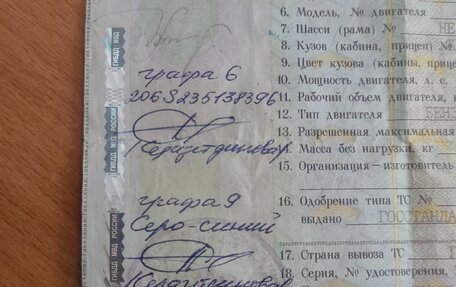 графа 6
206S235138396
графа 9
Серо-синий
ГИБДД МВД
ГИБДД МВД РОССИИ
ГИБДД МВД РОССИИ
6. Модель, № двигателя
7. Шасси (рама) № НЕ
8. Кузов (кабина, прицеп) №
9. Цвет кузова (кабины, прице
10. Мощность двигателя, л. с.
11. Рабочий объем двигателя, к
12. Тип двигателя БЕНЗ
13. Разрешенная максимальная
14. Масса без нагрузки, кг
15. Организация — изготовитель
16. Одобрение типа ТС №
выдано ГОССТАНДА
17. Страна вывоза ТС
18. Серия, № удостоверения,